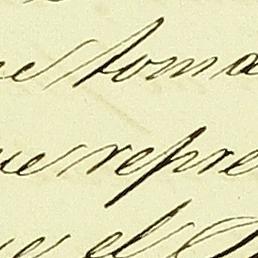 e toma
ue repre
e el